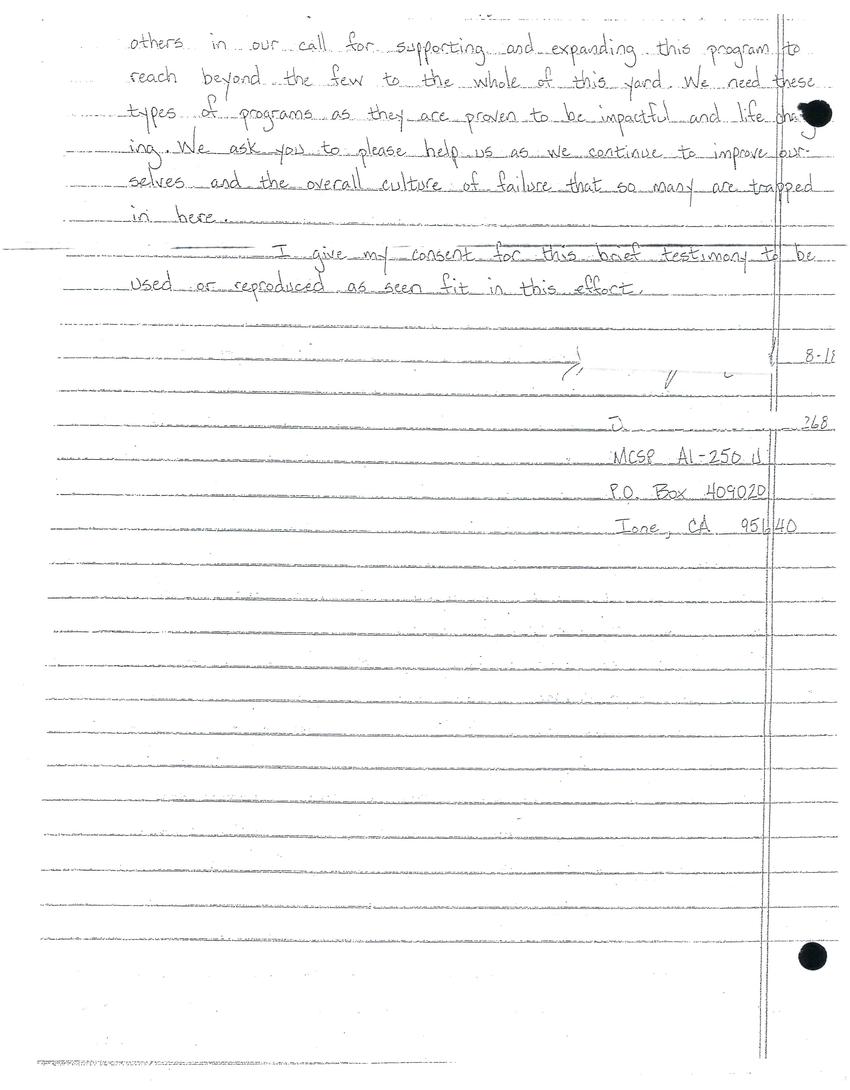 others in our call for supporting and expanding this program to
reach beyond the few to the whole of this yard. We need these
types of programs as they are proven to be impactful and life
ing. We ask you to please help us as we continue to improve our-
selves and the overall culture of failure that so many are trapped
in here.
I give my consent for this brief testimony to be
used or reproduced as seen fit in this effort.
8-18
J 268
MCSP A1-250 U
P.O. Box 409020
Ione, CA 95640